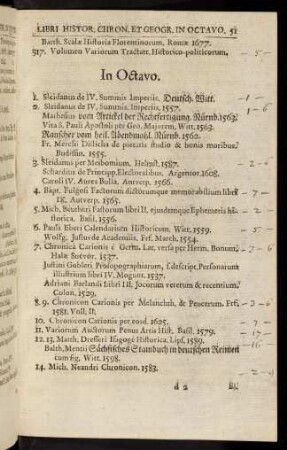 LIBRI HISTOR. CHRON. ET GEOGR. IN OCTAVO. 51
Barth. Scalæ Historia Florentinorum, Romæ 1677.
317. Volumen Variorum Tractatt. Historico-politicorum. - 5 -
In Octavo.
1. Sleidanus de IV. Summis Imperiis, Deutsch. Witt. - 1 -
2. Sleidanus de IV. Summis Imperiis, 1557. - 6
Mathesius vom Artickel der Rechtfertigung. Nürnb. 1563.
Vita S. Pauli Apostoli per Geo. Majorem, Witt. 1563.
Rauscher vom heil. Abendmahl. Nürnb. 1560.
Fr. Mercsii Disticha de pietatis studio & bonis moribus,
Budissin, 1555.
3. Sleidanus per Meibomium, Helmst. 1587. - 2 -
Schardius de Principp. Electoralibus, Argentor. 1608.
Caroli IV. Aurea Bulla. Antverp. 1566.
4. Bapt. Fulgosi Factorum dictorumque memorabilium libri
IX. Autverp. 1565.
5. Mich. Beutheri Fastorum libri II. ejusdemque Ephemeris hi-
storica, Basil. 1556.
6. Pauli Eberi Calendarium Historicum, Witt. 1559. - 5 -
Wolfg. Justus de Academiis, Frf. March. 1554.
7. Chronica Carionis è Germ. Lat. versa per Herm. Bonum,
Halæ Soëvor. 1537.
Justini Gobleri Prosopographiarum, & descript. Personarum
illustrium libri IV. Mogunt. 1537.
Adriani Barlandi Libri III. Jocorum veterum & recentium,
Colon. 1529.
8. 9. Chronicon Carionis per Melanchth. & Peucerum. Frf.
1581. Voll. II.
10. Chronicon Carionis per eosd. 1625. - 7 -
11. Variorum Auctorum Penus Artis Hist. Basil. 1579. - 17 -
12. 13. Matth. Dresseri Isagoge Historica. Lips. 1589. - 16 -
Balth. Mentii Sächsisches Stambuch in deutschen Reimen
cum fig. Witt. 1598.
14. Mich. Neandri Chronicon. 1583. - 2 -
d 2